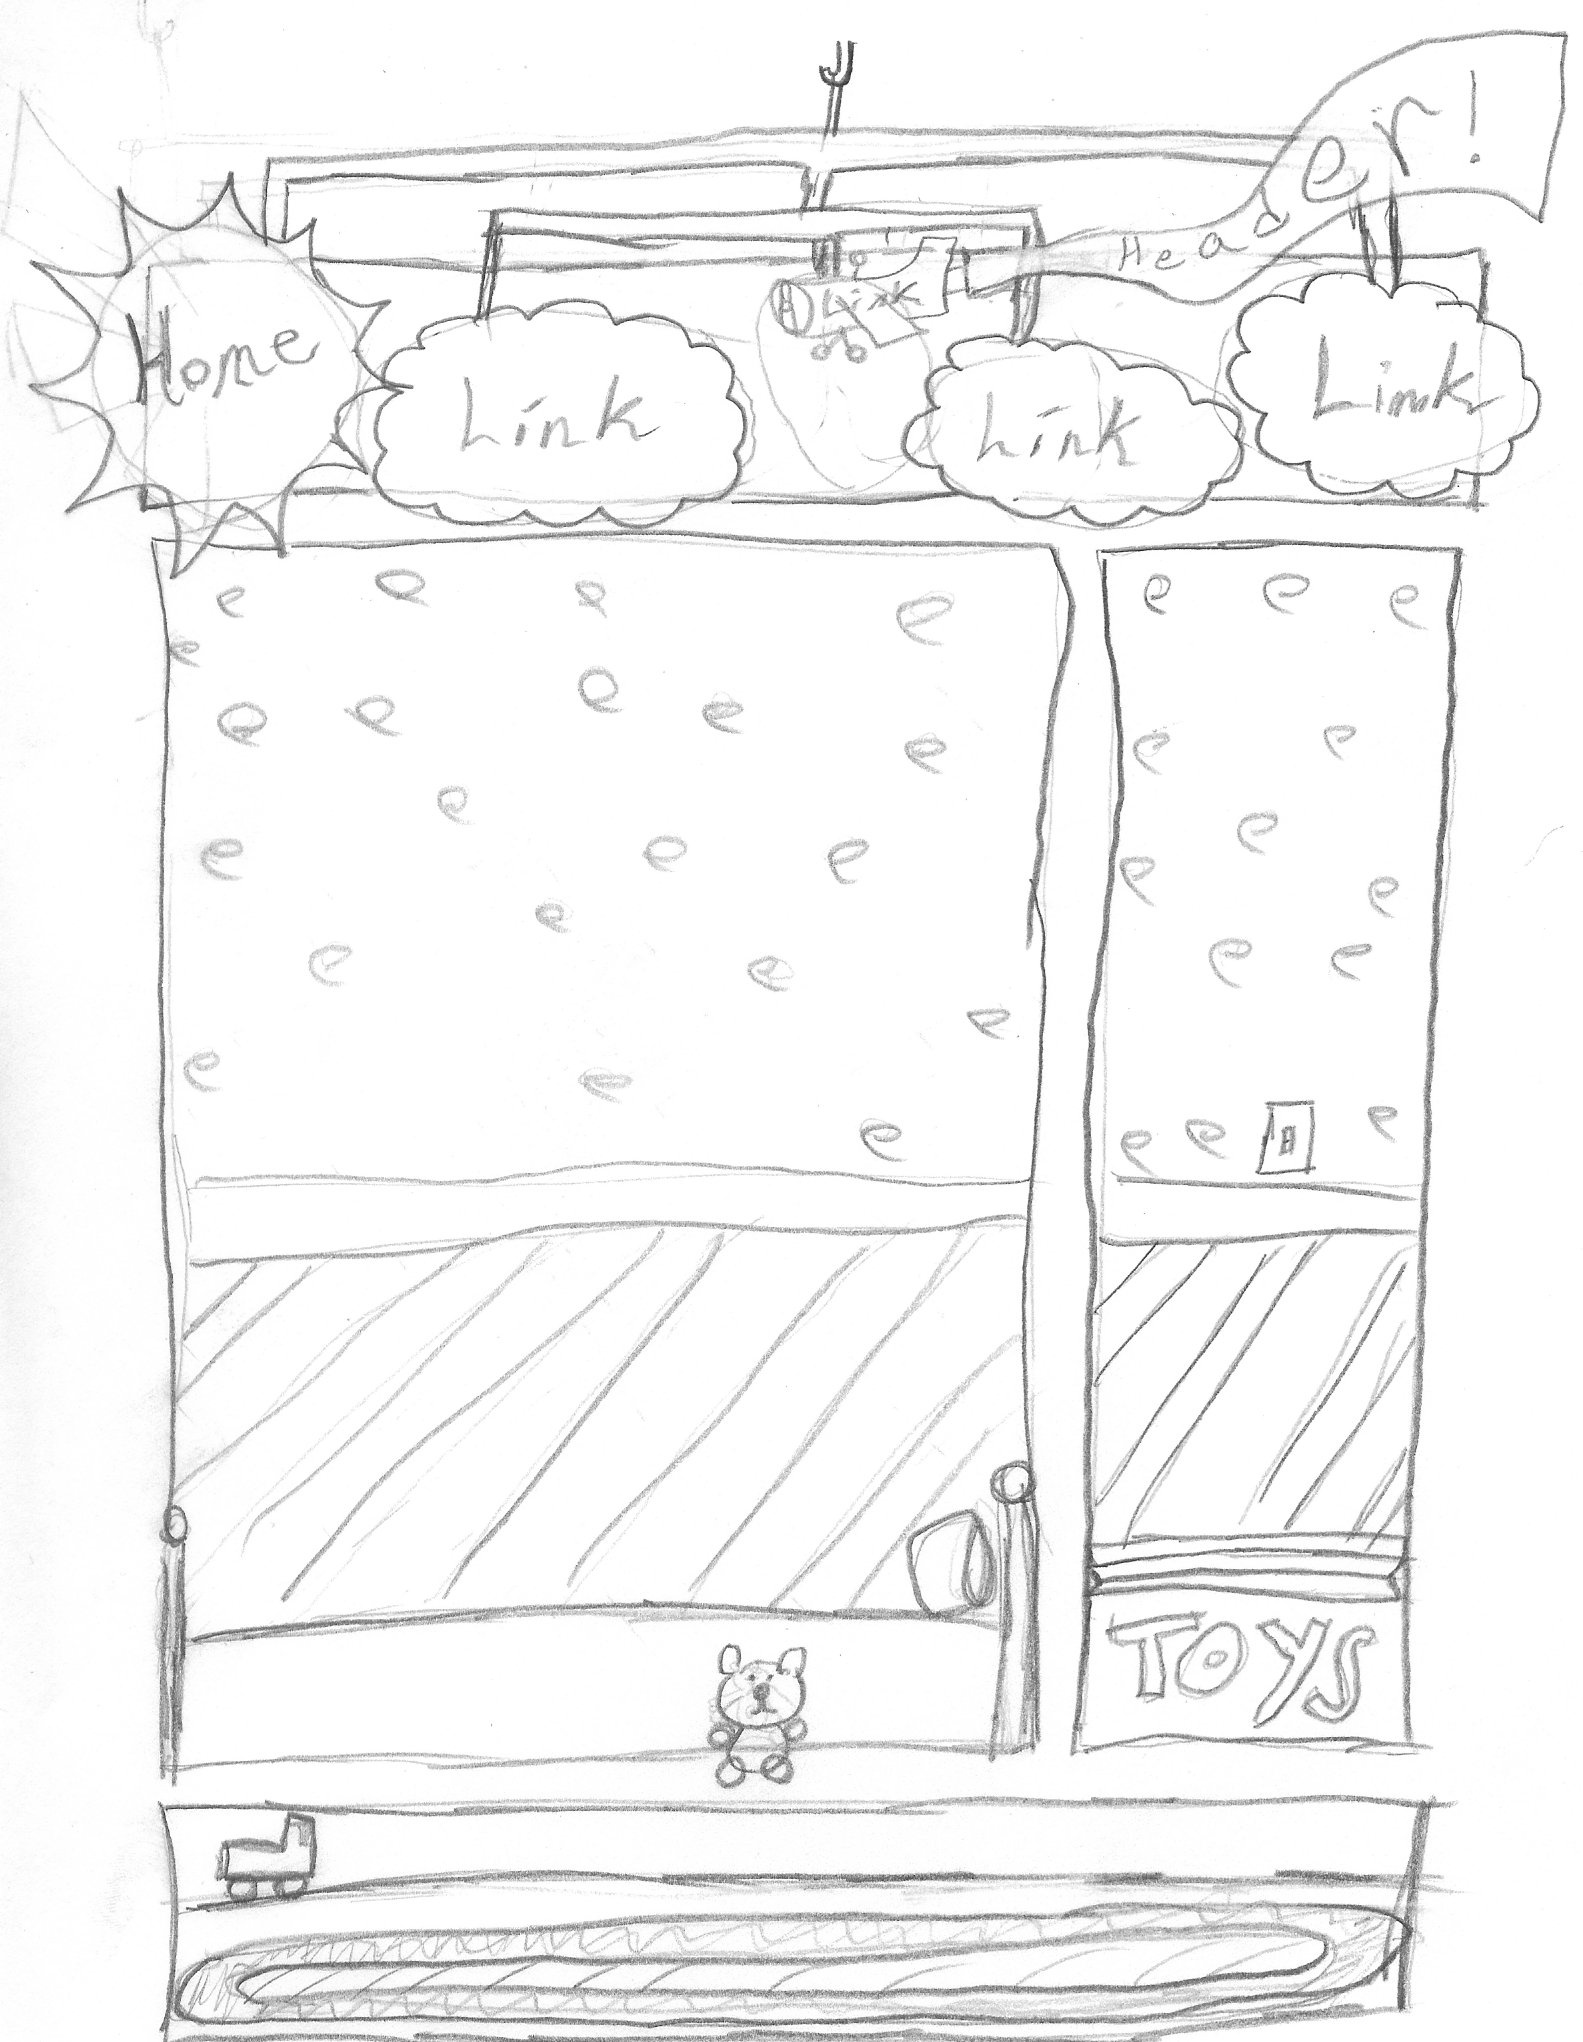 Header!
Home
Link
Link
Link
Link
TOYS